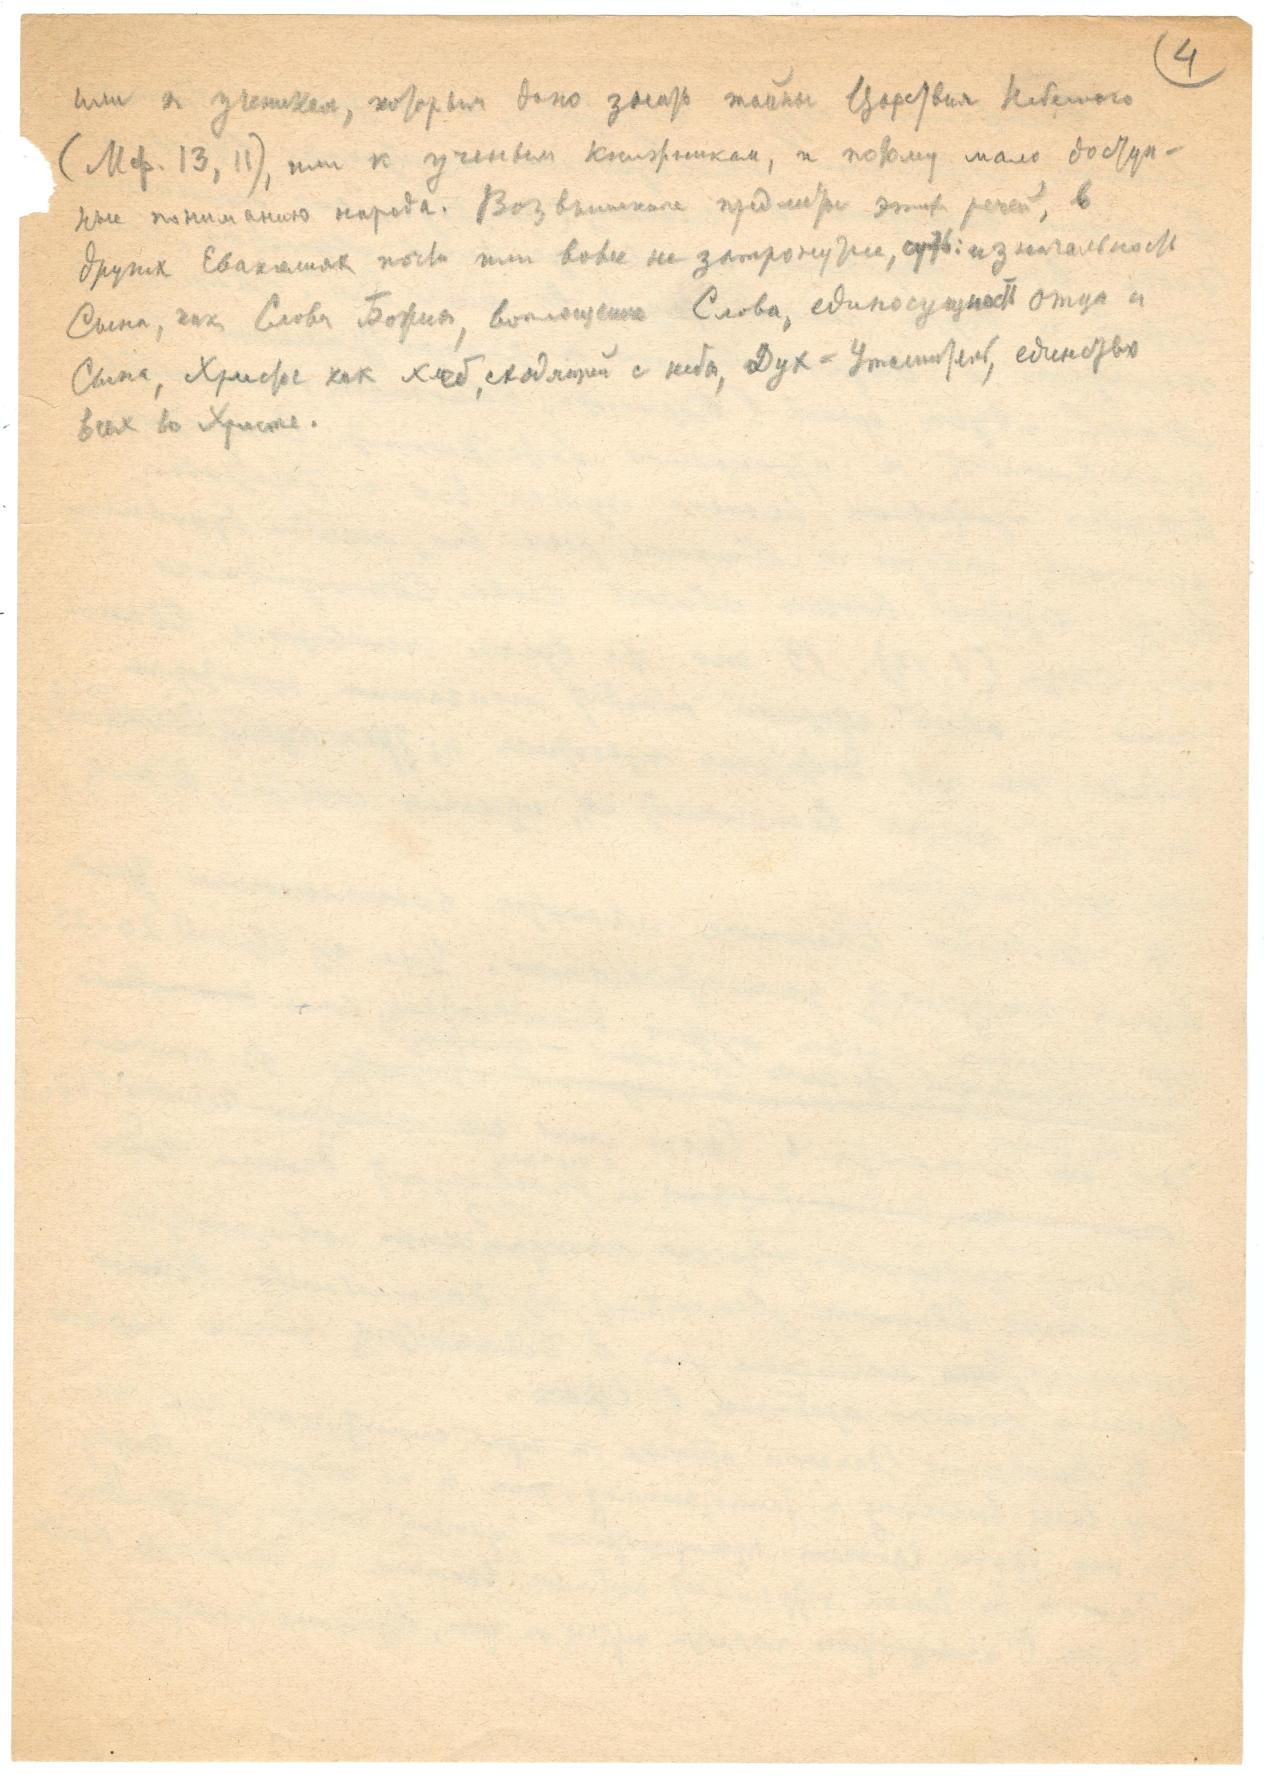 4
или к ученикам, которым дано знать тайны Царствия Небесного
(Мф. 13, 11), или к ученым книжникам, и потому мало доступ-
ные пониманию народа. Возвышенные предметы этих речей, в
других Евангелиях почти или вовсе не затронутые, суть: изначальность
Сына, как Слова Божия, воплощение Слова, единосущность Отца и
Сына, Христос как хлеб, сходящий с неба, Дух-Утешитель, единство
всех во Христе.